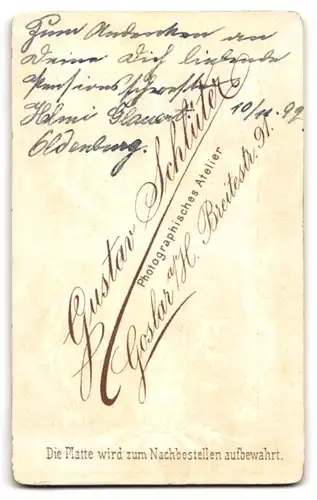 Zum Andenken an
Deine Dich liebende
Pensionsschwester
Helmi Glauert. 10/11. 99.
Oldenburg.
Gustav Schlüter
Photographisches Atelier
Goslar a/H. Breitestr. 91.
Die Platte wird zum Nachbestellen aufbewahrt.